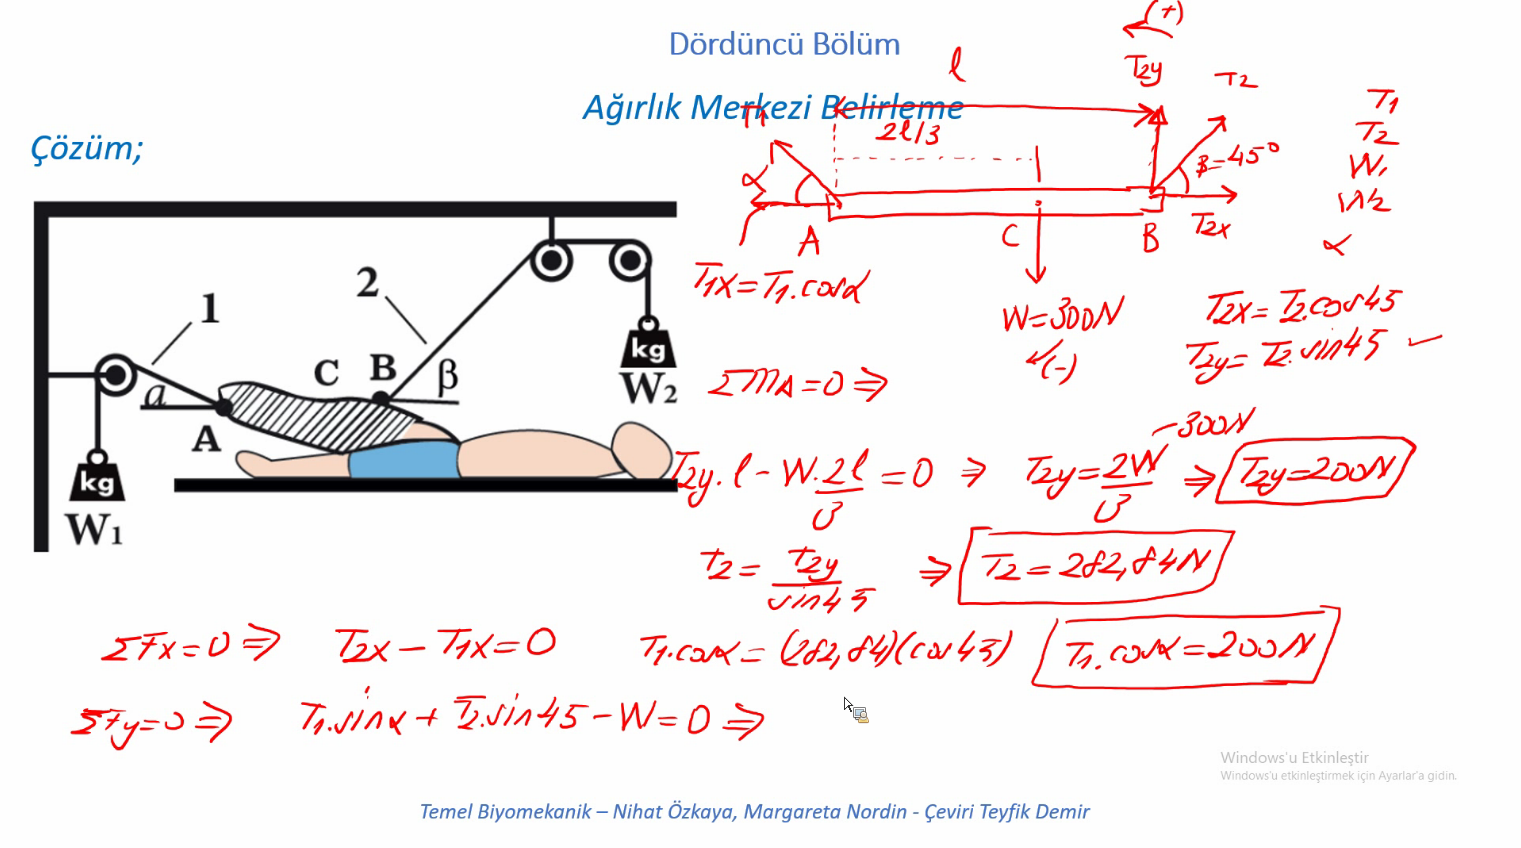 Dördüncü Bölüm
Ağırlık Merkezi Belirleme
Çözüm;
(+)
l
T2y
T2
T1
2l/3
β=45°
α
T2x
A
C
B
T1
T2
W1
W2
α
T1x=T1.cosα
W=300N
(-)
T2x=T2.cos45
T2y=T2.sin45
1
2
C
B
β
a
A
kg
W2
kg
W1
ΣMA=0 ⇒
T2y.l - W.2l/3 = 0 ⇒ T2y=2W/3 ⇒ T2y=200N
300N
T2 = T2y/sin45 ⇒ T2=282,84N
ΣFx=0 ⇒ T2x-T1x=0 T1.cosα=(282,84)(cos45) T1.cosα=200N
ΣFy=0 ⇒ T1.sinα+T2.sin45-W=0 ⇒
Windows'u Etkinleştir
Windows'u etkinleştirmek için Ayarlar'a gidin.
Temel Biyomekanik – Nihat Özkaya, Margareta Nordin - Çeviri Teyfik Demir